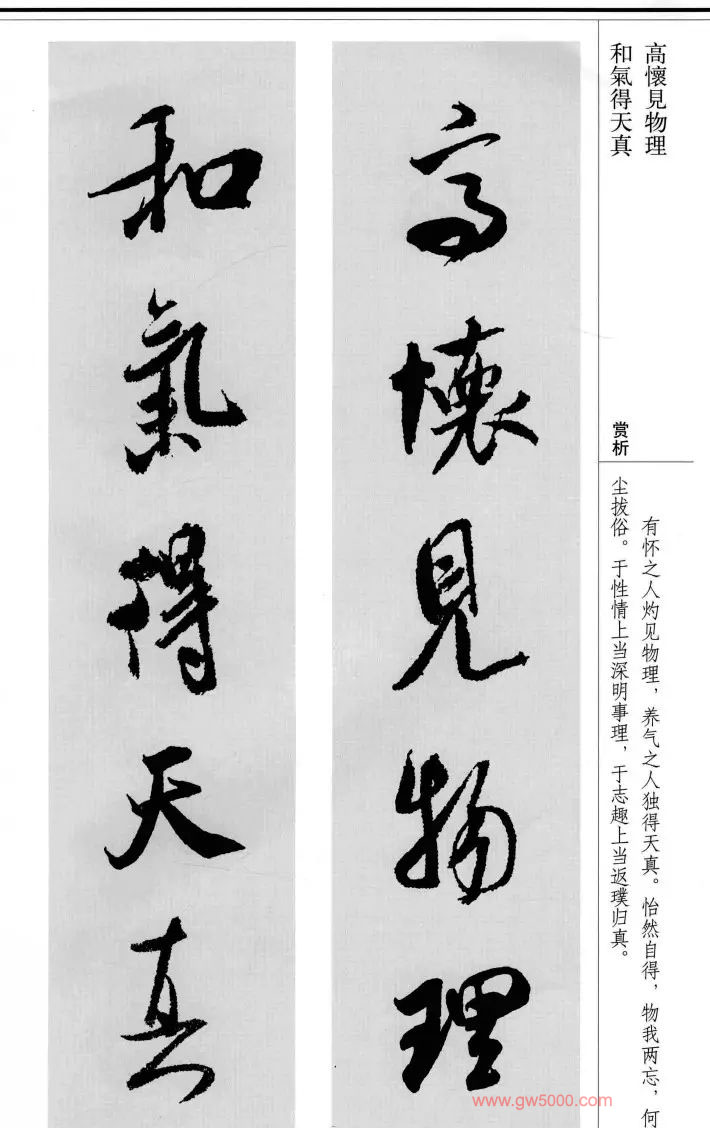 高懷見物理
和氣得天真
赏析
有怀之人灼见物理，养气之人独得天真。怡然自得，物我两忘，何
尘拔俗。于性情上当深明事理，于志趣上当返璞归真。
高懷見物理
和氣得天真
www.gw5000.com